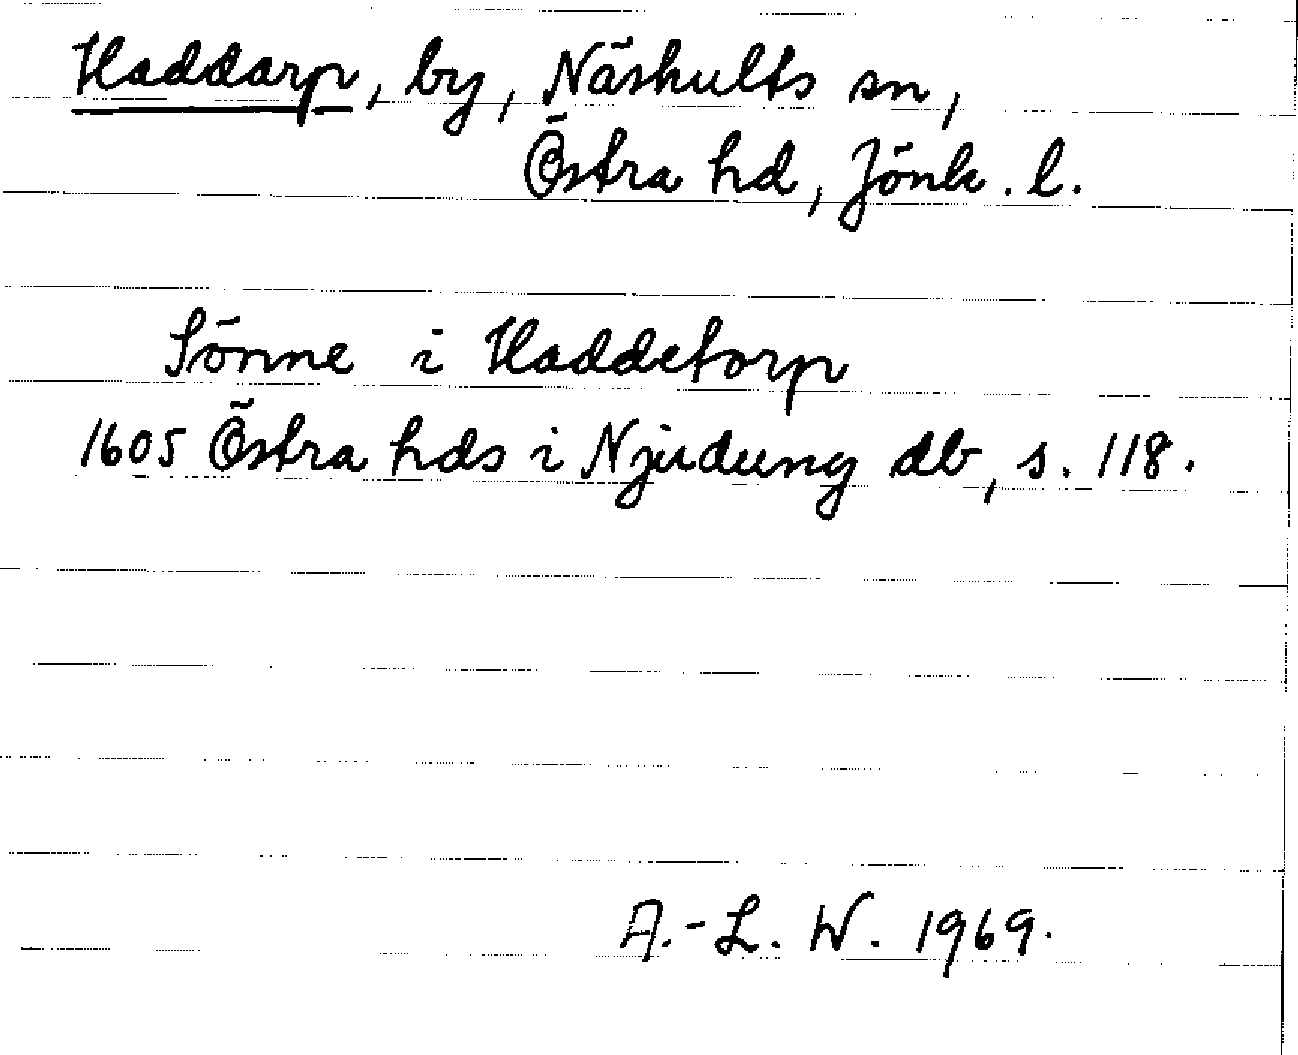 Haddarp, by, Näshults sn,
Östra hd, Jönk. l.
Sönne i Haddetorp
1605 Östra hds i Njudung db, s. 118.
A.-L. W. 1969.